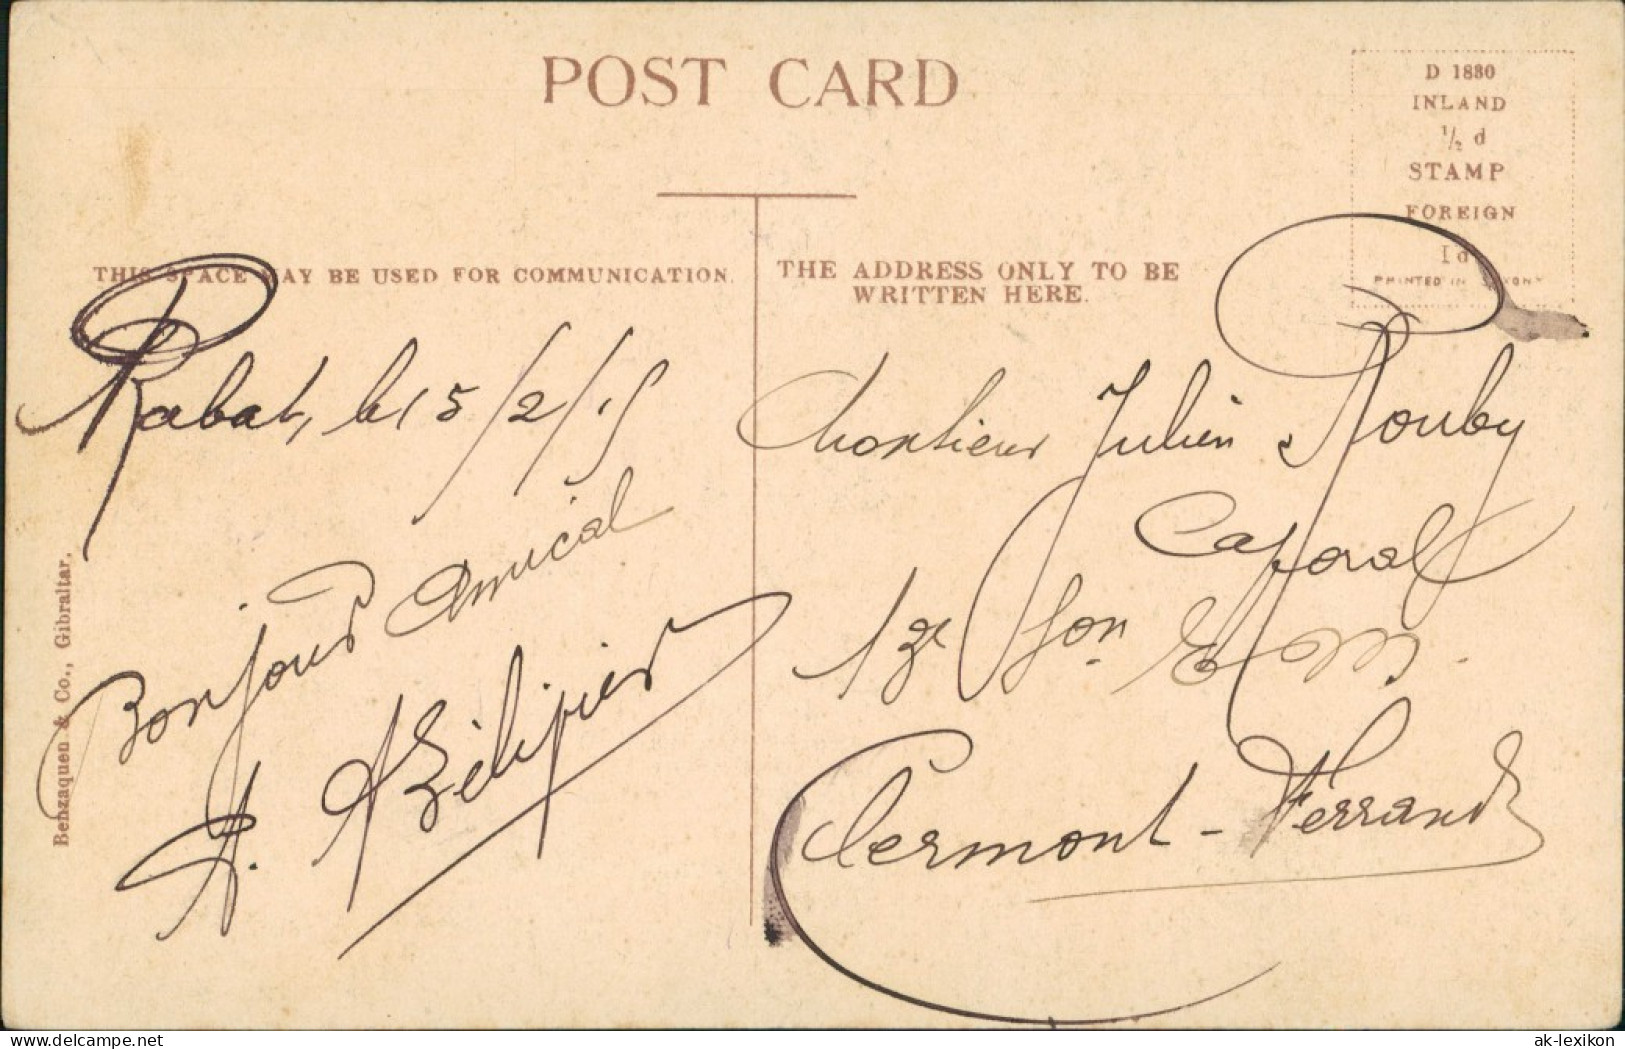 POST CARD
D 1880
INLAND
½ d
STAMP
FOREIGN
1d
PRINTED IN SAXONY
THIS SPACE MAY BE USED FOR COMMUNICATION.
THE ADDRESS ONLY TO BE
WRITTEN HERE.
Rabat, le 15/2/15
Bonjour Amical
A.
Benzaquen & Co., Gibraltar.
Monsieur Julien Rouby
Caporal
13e Son E. M.
Clermont-Ferrand
ak-lexikon.com
ak-lexikon